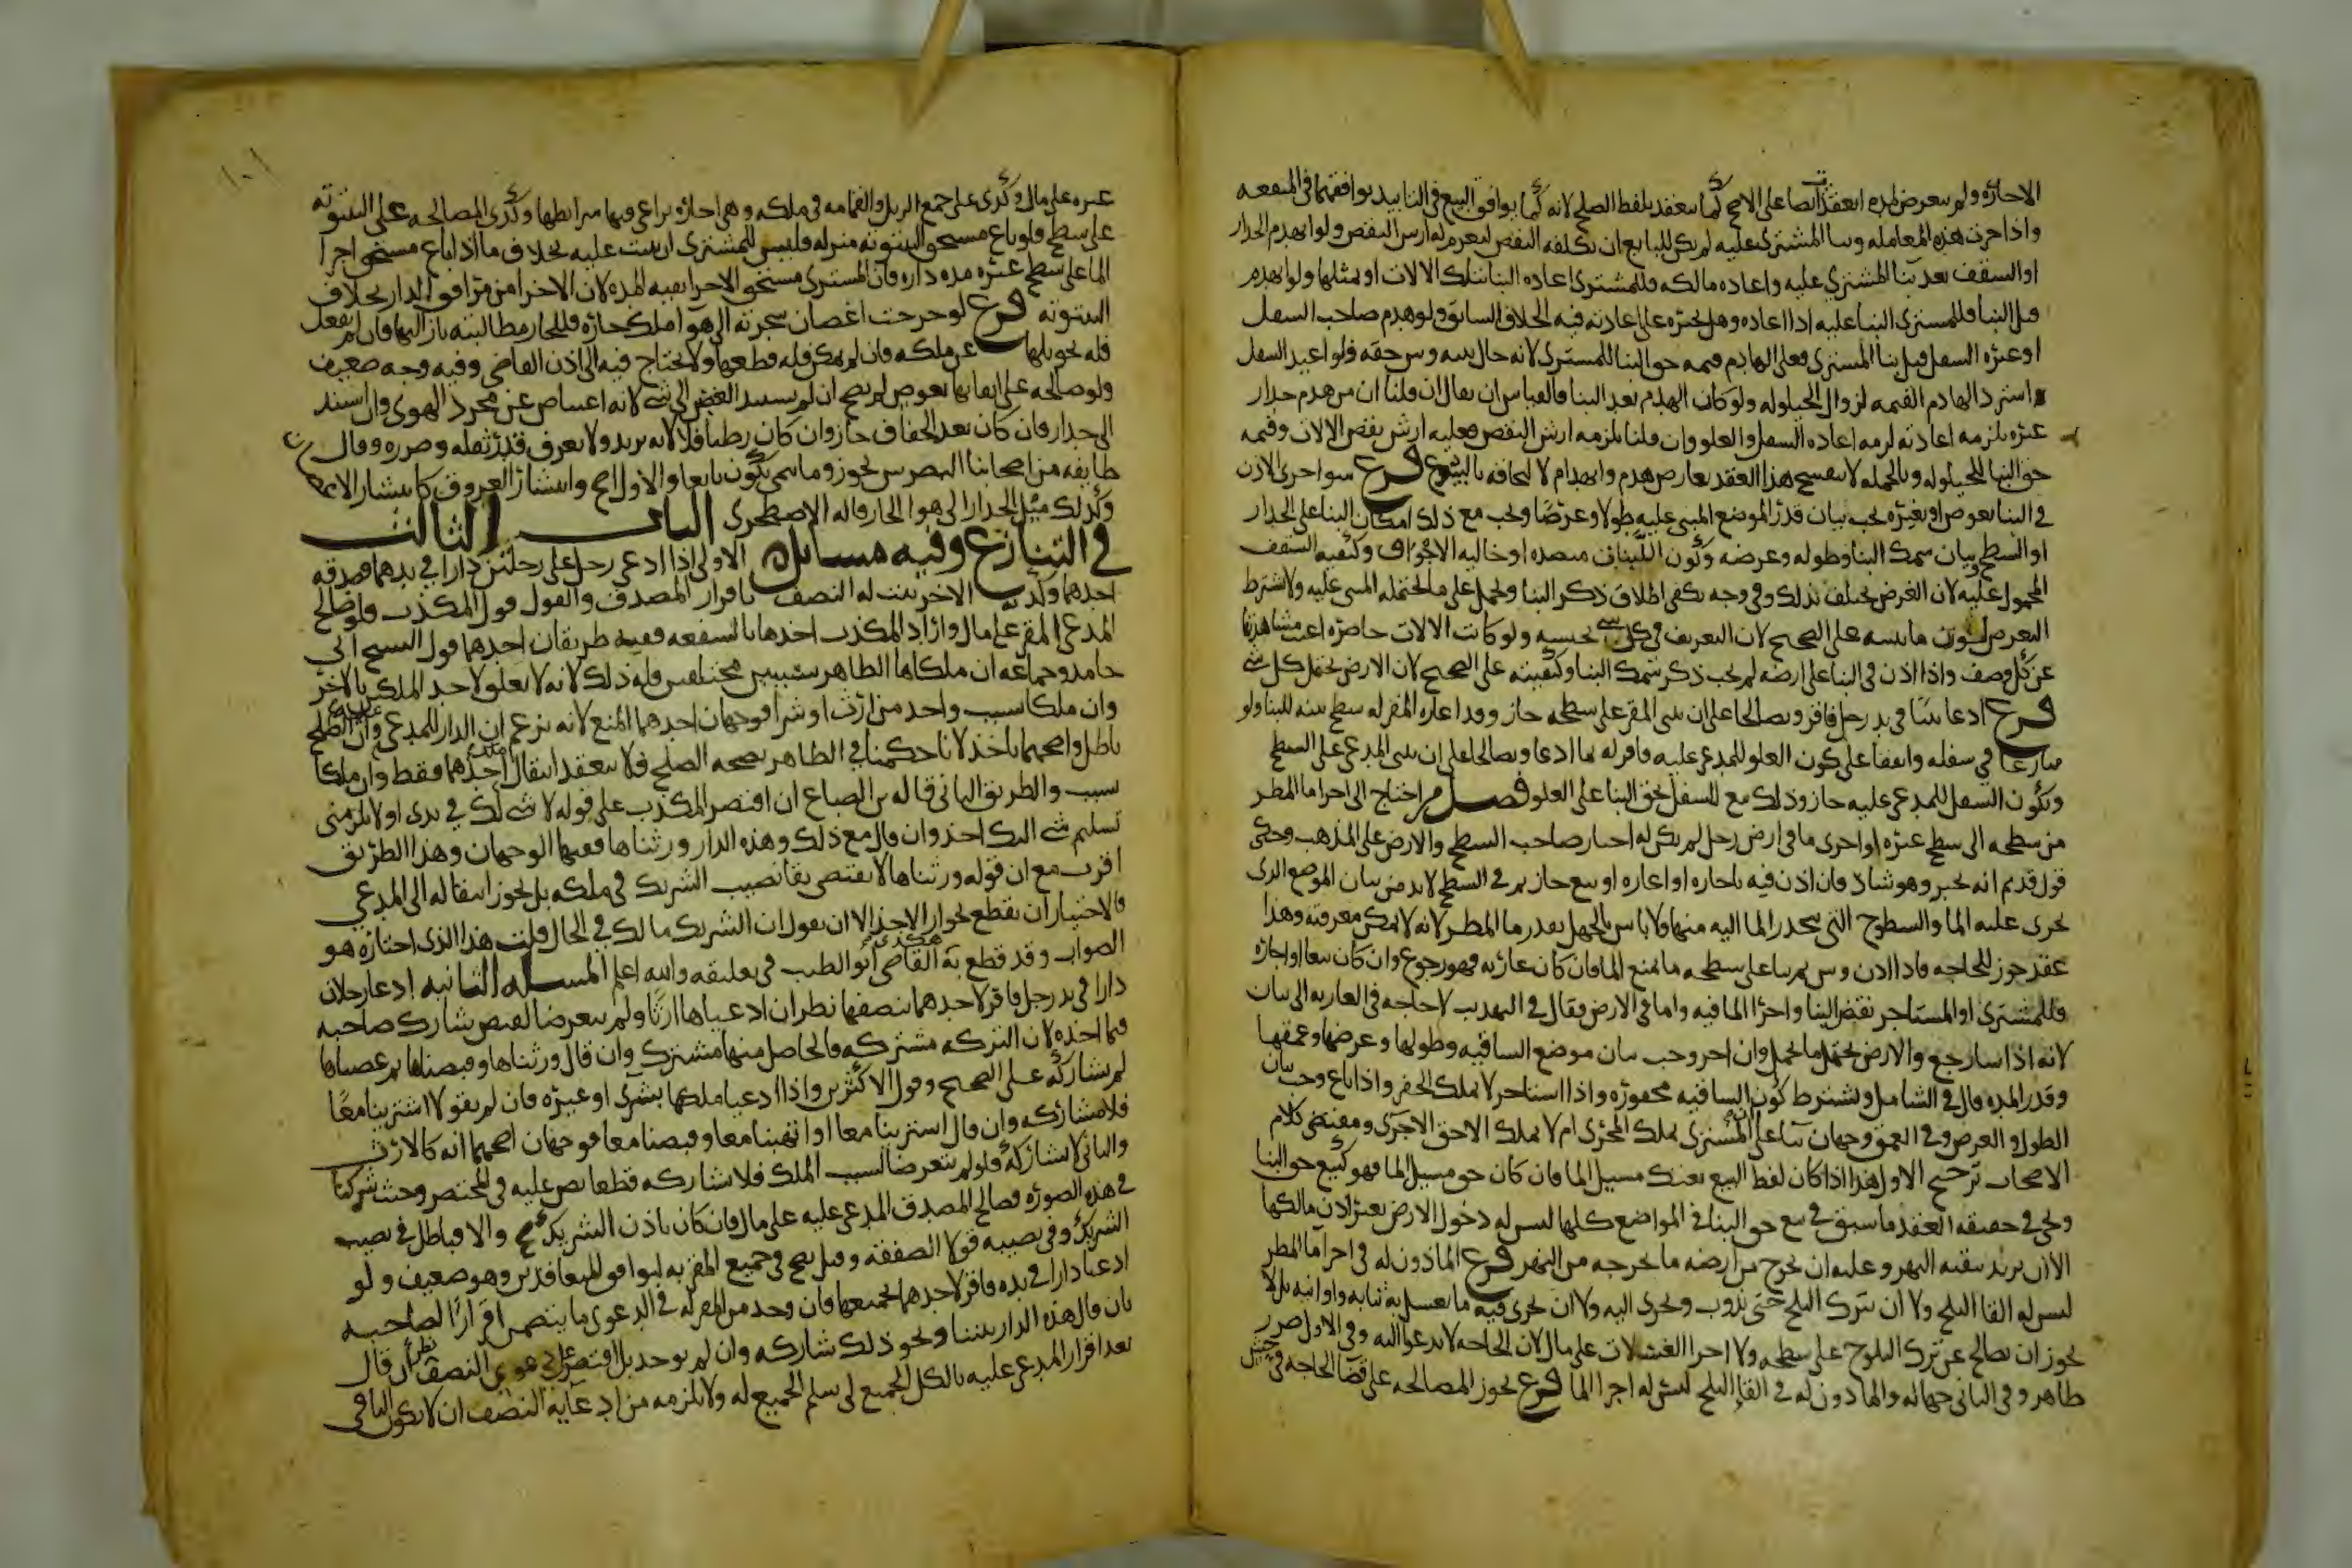 الاجازه ولم يتعرض لمده انعقد ايضا على الاصح كما ينعقد بلفظ الصلح لانه كما يوافق البيع في التابيد يوافقهما في المنفعه
واذا جرت هذه المعامله وبنا المشتري عليه لم يكن للبايع ان يكلفه النقض ليغرم له ارش النقض ولو انهدم الجدار
او السقف بعد بنا المشتري عليه واعاده مالكه فللمشتري اعاده البنا بتلك الالات او بمثلها ولو انهدم
قبل البنا فللمشتري البنا عليه اذا اعاده وهل يجبره على اعادته فيه الخلاف السابق ولو هدم صاحب السفل
او غيره السفل قبل بنا المشتري فعلى الهادم قيمه حق البنا للمشتري لانه حال بينه وبين حقه فلو اعيد السفل
استرد الهادم القيمه لزوال الحيلوله ولو كان الهدم بعد البنا فالقياس ان يقال ان قلنا ان من هدم جدار
غيره يلزمه اعادته لزمه اعاده السفل والعلو وان قلنا يلزمه ارش النقص فعليه ارش نقص الالات وقيمه
حق البنا للحيلوله وبالجمله لا ينفسخ هذا العقد بعارض هدم وانهدام لالتحاقه بالبيوع فرع سوا جرى الاذن
في البنا بعوض او بغيره يجب بيان قدر الموضع المبني عليه طولا وعرضا ويجب مع ذلك ان كان البنا على الجدار
او السطح بيان سمك البنا وطوله وعرضه وكون اللبنات منضده او خاليه الاجواف وكيفيه السقف
المحمول عليه لان الغرض يختلف بذلك وفي وجه يكفي اطلاق ذكر البنا ويحمل على ما يحتمله المبنى عليه ولا يشترط
التعرض لوزن ما يبنيه على الصحيح لان التعريف في كل شي بحسبه ولو كانت الالات حاضره اغنت مشاهدتها
عن كل وصف واذا اذن في البنا على ارضه لم يجب ذكر سمك البنا وكيفيته على الصحيح لان الارض تحتمل كل شي
فرع ادعا بيتا في يد رجل فاقر وتصالحا على ان يبني المقر على سطحه جاز وقد اعاره المقر له سطح بيته للبنا ولو
تنازعا في سفله واتفقا على كون العلو للمدعى عليه فاقر له بما ادعا وتصالحا على ان يبني المدعي على السطح
ويكون السفل للمدعى عليه جاز وذلك بيع للسفل بحق البنا على العلو فصل من احتاج الى اجرا ما المطر
من سطحه الى سطح غيره او اجرى ما في ارض رجل لم يكن له اجبار صاحب السطح والارض على المذهب وحكي
قول قديم انه يجبر وهو شاذ فان اذن فيه باجاره او اعاره او بيع جاز ثم في السطح لا بد من بيان الموضع الذي
يجرى عليه الما والسطوح التي ينحدر الما اليه منها ولا باس بالجهل بقدر ما المطر لانه لا يمكن معرفته وهذا
عقد جوز للحاجه فاذا اذن وبين ثم بنا على سطحه ما يمنع الما فان كان عاريه فهو رجوع وان كان بيعا او اجاره
فللمشتري او المستاجر نقض البنا واجرا الما فيه واما في الارض فقال في التهذيب لا حاجه في العاريه الى بيان
لانه اذا شا رجع والارض تحتمل ما تحمل وان اجر وجب بيان موضع الساقيه وطولها وعرضها وعمقها
وقدر المده قال في الشامل ويشترط كون الساقيه محفوره واذا استاجر لا يملك الحفر واذا باع وجب بيان
الطول و العرض وفي العمق وجهان بنا على ان المشتري يملك المجرى ام لا يملك الا حق الاجرى ومقتضى كلام
الاصحاب ترجيح الاول هذا اذا كان لفظ البيع بعتك مسيل الما فان كان حق مسيل الما فهو كبيع حق البنا
ويجي في حقيقه العقد ما سبق في بيع حق البنا في المواضع كلها ليس له دخول الارض بغير اذن مالكها
الا ان يريد تنقيه النهر و عليه ان يخرج من ارضه ما يخرجه من النهر فرع الماذون له في اجرا ما المطر
ليس له القا الثلج ولا ان يترك الثلج حتى يذوب ويجرى اليه ولا ان يجري فيه ما يغسل به ثيابه واوانيه بل لا
يجوز ان يصالح عن ترك الثلوج على سطحه ولا اجرا الغسلات على مال لان الحاجه لا تدعو اليه وفي الاول ضرر
ظاهر و في الثاني جهاله والماذون له في القا الثلج ليس له اجرا الما فرع يجوز المصالحه على قضا الحاجه في حش
غيره على مال وكذى على جمع الزبل والقمامه في ملكه و هي اجاره يراعى فيها شرايطها وكذى المصالحه على البيتوته
على سطح فلو باع مستحق البيتوته منزله فليس للمشتري ان يبيت عليه بخلاف ما اذا باع مستحق اجرا
الما على سطح غيره مده داره فان المشتري يستحق الاجرا بقيه المده لان الاجرا من مرافق الدار بخلاف
البيتوته فرع لو خرجت اغصان شجرته الى هوا ملك جاره فللجار مطالبته بازالتها فان لم يفعل
فله تحويلها عن ملكه فان لم يمكن فله قطعها ولا يحتاج فيه الى اذن القاضي وفيه وجه ضعيف
ولو صالحه على ابقايها بعوض لم يصح ان لم يستند الغصن الى شي لانه اعتياض عن مجرد الهوى وان استند
الى جدار فان كان بعد الجفاف جاز وان كان رطبا فلا لانه يزيد ولا يعرف قدر ثقله وضرره وقال
طايفه من اصحابنا البصريين يجوز وما ينمي يكون تابعا والاول اصح وانتشار العروق كانتشار الاغصان
وكذلك ميل الجدار الى هوا الجار قاله الاصطخري الباب الثالث
في التنازع وفيه مسايل الاولى اذا ادعى رجل على رجلين دارا في يدهما فصدقه
احدهما وكذبه الاخر ثبت له النصف باقرار المصدق والقول قول المكذب فلو صالح
المدعي المقر على مال واراد المكذب اخذها بالشفعه ففيه طريقان احدهما قول الشيخ ابي
حامد وجماعه ان ملكاها الظاهر بسببين مختلفين فله ذلك لانه لا تعلق لاحد الملكين بالاخر
وان ملكا بسبب واحد من ارث او شرا فوجهان احدهما المنع لانه يزعم ان الدار للمدعي وان الصلح
باطل واصحهما ياخذ لانا حكمنا في الظاهر بصحه الصلح فلا ينعقد انتقال ملك احدهما فقط وان ملكا
بسبب والطريق الثاني قاله بن الصباغ ان اقتصر المكذب على قوله لا شي لك في يدى او لا يلزمني
تسليم شي اليك اخذ وان قال مع ذلك وهذه الدار ورثناها ففيها الوجهان وهذا الطريق
اقرب مع ان قوله ورثناها لا يقتضي بقا نصيب الشريك في ملكه بل يجوز انتقاله الى المدعي
فالاختيار ان يقطع بجواز الاخذ الا ان يقول ان الشريك مالك في الحال قلت هذا الذى اختاره هو
الصواب و قد قطع به هكذى القاضي ابو الطيب في تعليقه والله اعلم المسله الثانيه ادعا رجلان
دارا في يد رجل فاقر لاحدهما بنصفها نظر ان ادعياها ارثا ولم يتعرضا لقبض شارك صاحبه
فيما اخذه لان التركه مشتركه فالحاصل منها مشترك وان قال ورثناها وقبضناها ثم غصبناها
لم يشاركه على الصحيح وقول الاكثرين واذا ادعيا ملكها بشرى او غيره فان لم يقولا اشترينا معا
فلا مشاركه وان قال اشترينا معا او اتهبنا معا وقبضنا معا فوجهان اصحهما انه كالارث
والثاني لا يشاركه فلو لم يتعرضا لسبب الملك فلا مشاركه قطعا نص عليه في المختصر وحيث شركنا
في هذه الصوره فصالح المصدق المدعى عليه على مال فان كان باذن الشريك صح والا فباطل في نصيب
الشريك و في نصيبه قولا الصفقه وقيل يصح في جميع المقر به لتوافق المتعاقدين وهو ضعيف و لو
ادعيا دارا في يده فاقر لاحدهما بجميعها فان وجد من المقر له في الدعوى ما يتضمن اقرارا لصاحبه
بان قال هذه الدار بيننا ونحو ذلك شاركه وان لم يوجد بل اقتصر على دعوى النصف نظر ان قال
بعد اقرار المدعى عليه بالكل الجميع لي سلم الجميع له ولا يلزمه من ادعايه النصف ان لا يكون الباقي